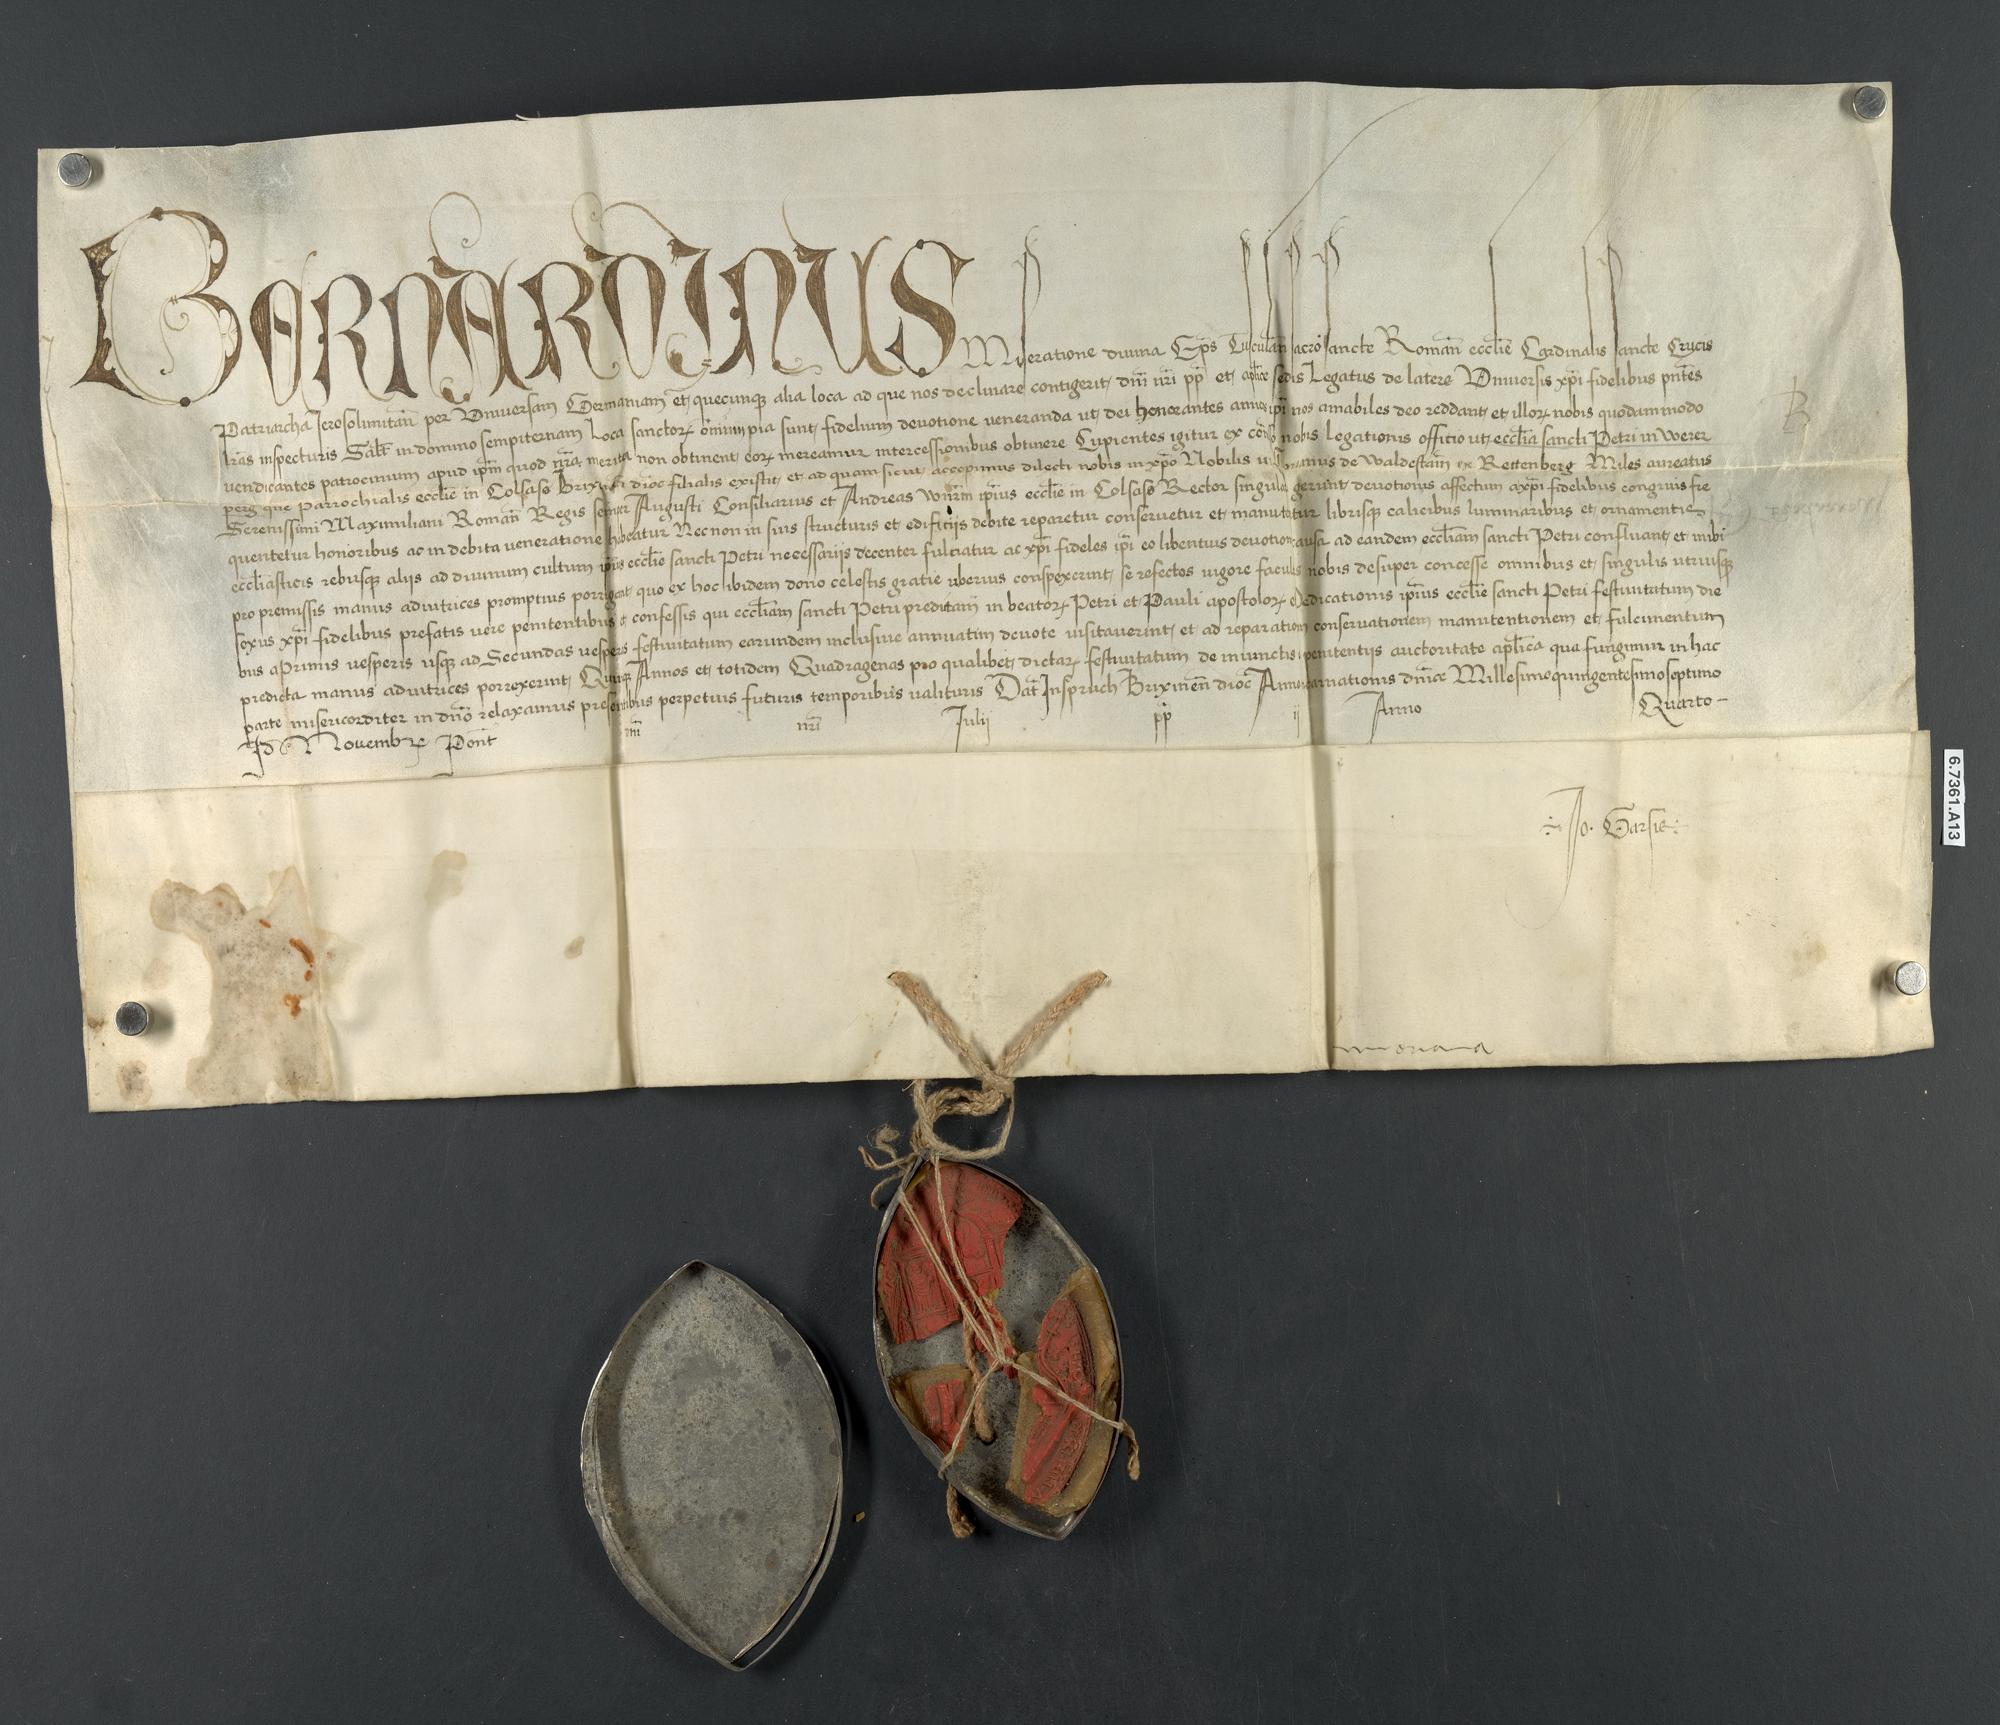 BERNARDINUS Miseratione divina Ep̄s Tusculan̄ sacro sancte Roman̄ eccl̄ie Cardinalis sancte Crucis
Patriarcha Jerosolimitan̄ per Universam Germaniam et quecunqȝ alia loca ad que nos declinare contigerit dn̄i nr̄i pp̄ et ap̄lice sedis Legatus de latere Universis xp̄i fidelibus pn̄tes
lr̄as inspecturis Salt̄ in domino sempiternam Loca sanctorꝝ omnium pia sunt fidelium devotione veneranda ut dei honorantes amicos ip̄i nos amabiles deo reddant et illorꝝ nobis quodammodo
vendicantes patrocinium apud ip̄m quod nr̄a merita non obtinent eorꝝ mereamur intercessionibus obtinere Cupientes igitur ex nobis legationis officio ut eccl̄ia sancti Petri in Werer
perg que Parrochialis eccl̄ie in Colsass Brixinen̄ dioc̄ filialis existit et ad quam sicut accepimus dilecti nobis in xp̄o Nobilis de Waldestain ex Rettenberg Miles aureatus
Serenissimi Maximiliani Roman̄ Regis semper Augusti Consiliarius et Andreas Wurm ip̄ius eccl̄ie in Colsass Rector singularem gerunt devotionis affectum a xp̄i fidelibus congruis fre
quentetur honoribus ac in debita veneratione habeatur Necnon in suis structuris et edificijs debite reparetur conservetur et manuteneatur librisqȝ calicibus luminaribus et ornamentis
eccl̄iasticis rebusqȝ alijs ad divinum cultum ip̄ius eccl̄ie sancti Petri necessarijs decenter fulciatur ac xp̄i fideles ip̄i eo libentius devotionis causa ad eandem eccl̄iam sancti Petri confluant et inibi
pro premissis manus adiutrices promptius porrigant quo ex hoc ibidem dono celestis gratie uberius conspexerint se refectos vigore facultatis nobis desuper concesse omnibus et singulis utriusqȝ
sexus xp̄i fidelibus prefatis vere penitentibus et confessis qui eccl̄iam sancti Petri predictam in beatorꝝ Petri et Pauli apostolorꝝ et dedicationis ip̄ius eccl̄ie sancti Petri festivitatum die
bus a Primis vesperis usqȝ ad Secundas vesperas festivitatum earundem inclusive annuatim devote visitaverint et ad reparationem conservationem manutentionem et fulcimentum
predicta manus adiutrices porrexerint Quinqȝ Annos et totidem Quadragenas pro qualibet dictarꝝ festivitatum de iniunctis penitentijs auctoritate ap̄lica qua fungimur in hac
parte misericorditer in dn̄o relaxamus presentibus perpetuis futuris temporibus valituris Dat̄ Inspruch Brixinen̄ dioc̄ Anno incarnationis dn̄ice Millesimoquingentesimoseptimo
Id̄ Novembꝝ Pont̄ dn̄i nr̄i Julij pp̄ ij Anno Quarto
Jo. Garsie
6.7361.A13